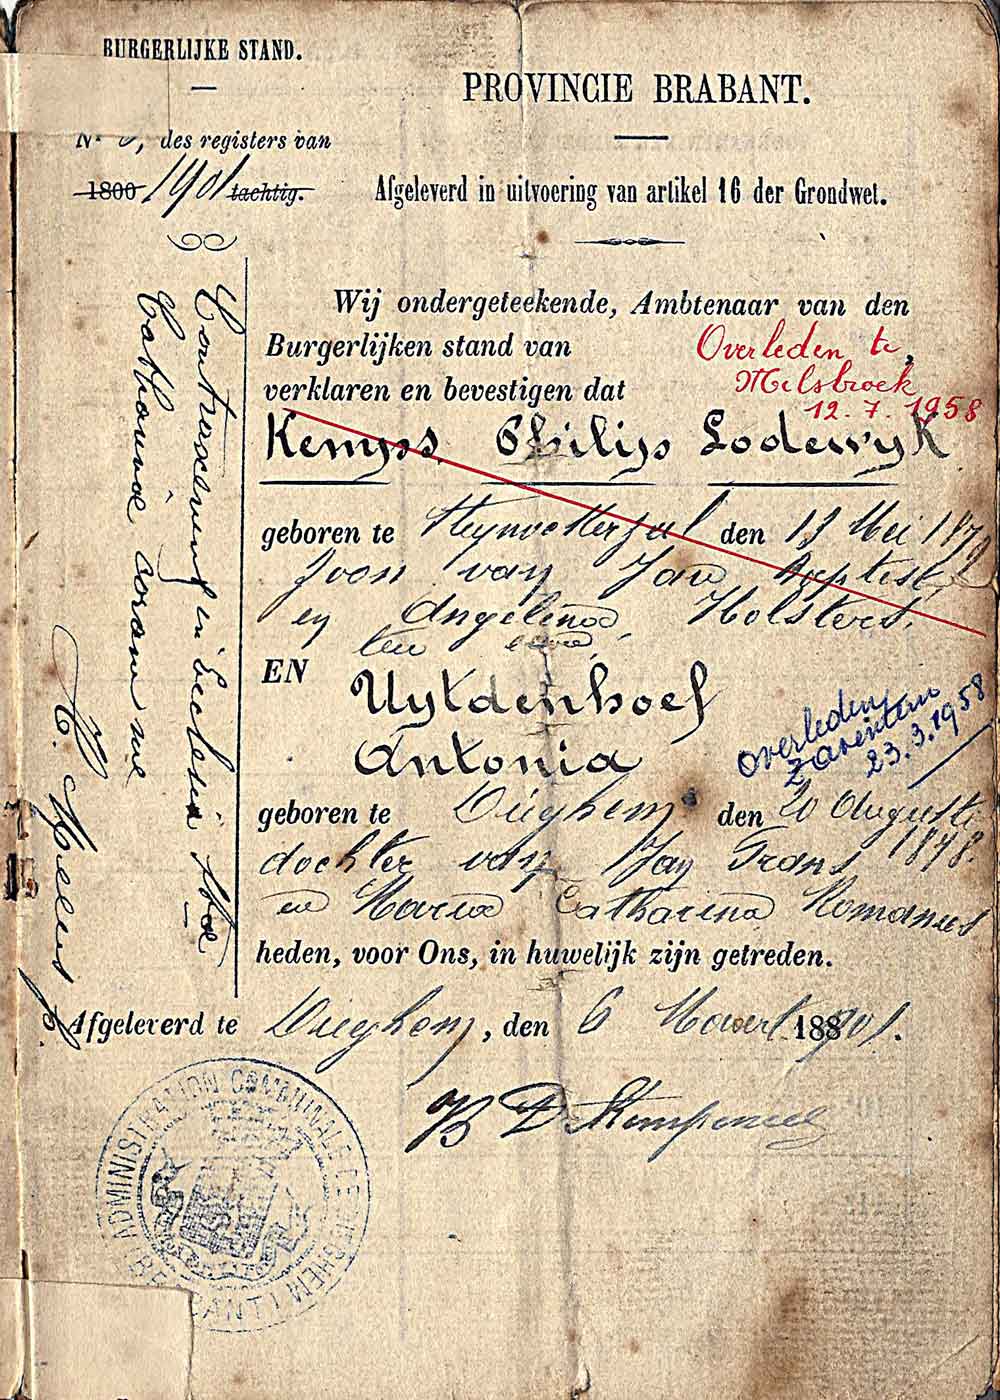 BURGERLIJKE STAND.
des registers van
1800 1901 tachtig.
PROVINCIE BRABANT.
Afgeleverd in uitvoering van artikel 16 der Grondwet.
Wij ondergeteekende, Ambtenaar van den
Burgerlijken stand van
verklaren en bevestigen dat
Overleden te
Melsbroek
12.7.1958
Kemps Philips Lodewyk
geboren te den 13 Mei
Zoon van Jan Baptist
en Angelina Holsters.
EN
Uytdenhoef
Antonia
Overleden
Zaventem
23.3.1958
geboren te Dieghem den 20 Augusti
1878.
dochter van Jan Frans
en Maria Catharina Romanus
heden, voor Ons, in huwelijk zijn getreden.
Afgeleverd te Dieghem, den 6 Maart 1901.
Contraxerunt in Ecclesia
Catholica coram me
ADMINISTRATION COMMUNALE DE DIEGHEM
(BRABANT)